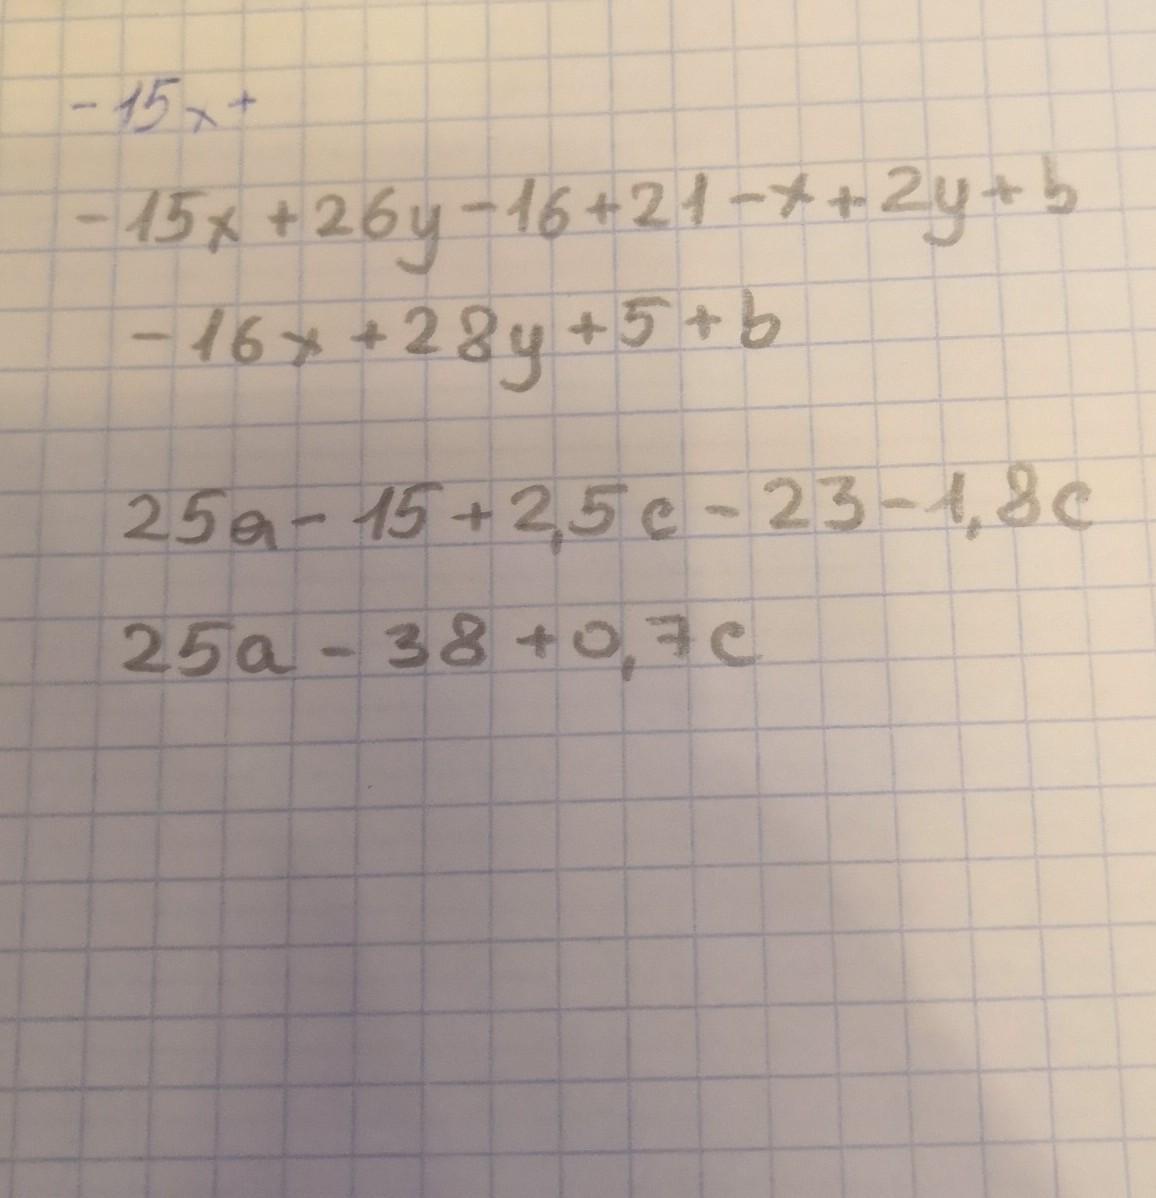 -15x+
-15x+26y-16+21-x+2y+b
-16x+28y+5+b
25a-15+2,5c-23-1,8c
25a-38+0,7c